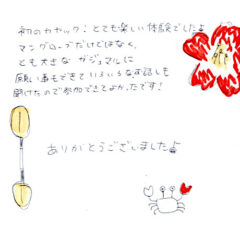 初のカヤック！とても楽しい体験でしたよ
マングローブだけではなく、
とても大きなガジュマルに
願い事もできていろいろなお話しも
聞けたので参加できてよかったです！
ありがとうございました♪